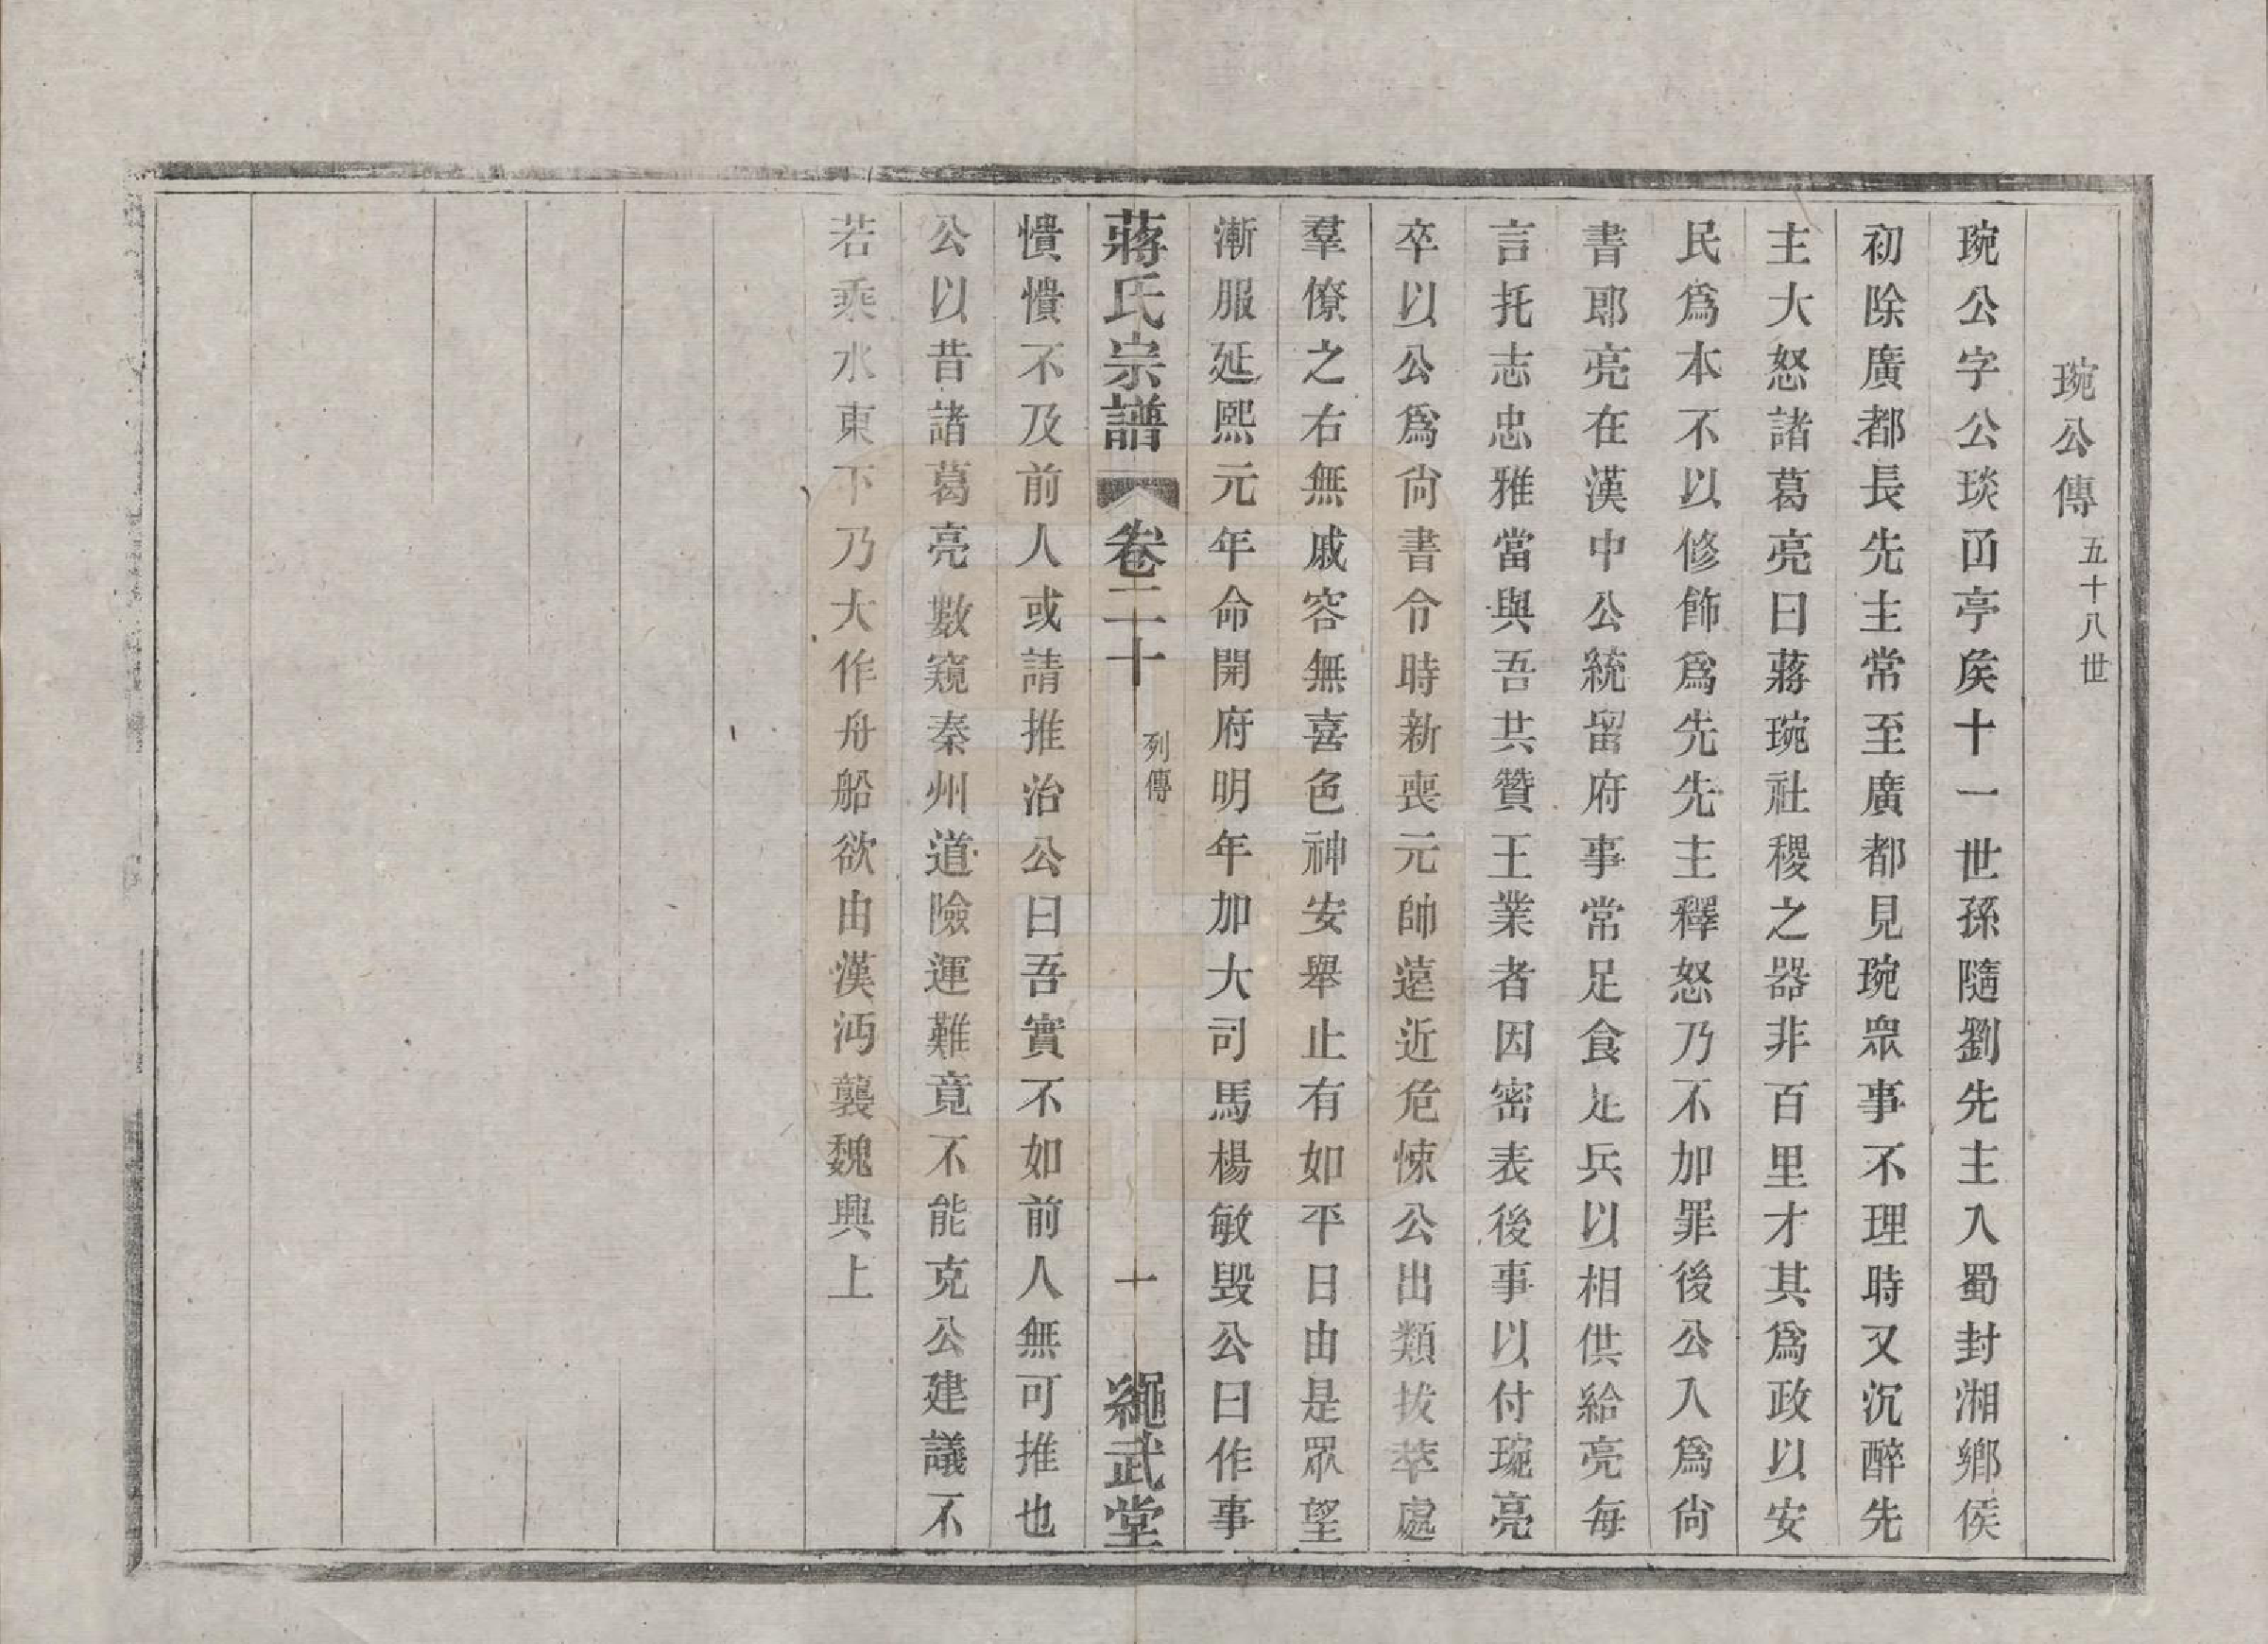 琬公傳 五十八世
琬公字公琰𠧟亭矦十一世孫隨劉先主入蜀封湘鄉侯
初除廣都長先主常至廣都見琬眾事不理時又沉醉先
主大怒諸葛亮曰蔣琬社稷之器非百里才其爲政以安
民爲本不以修飾爲先先主釋怒乃不加罪後公入爲尙
書郎亮在漢中公統留府事常足食足兵以相供給亮每
言托志忠雅當與吾共贊王業者因密表後事以付琬亮
卒以公爲尙書令時新喪元帥遠近危悚公出類拔萃處
羣僚之右無戚容無喜色神安舉止有如平日由是眾望
漸服延熙元年命開府明年加大司馬楊敏毀公曰作事
蔣氏宗譜 卷二十 列傳 十 繩武堂
憒憒不及前人或請推治公曰吾實不如前人無可推也
公以昔諸葛亮數窺秦州道險運難竟不能克公建議不
若乘水東下乃大作舟船欲由漢沔襲魏興上